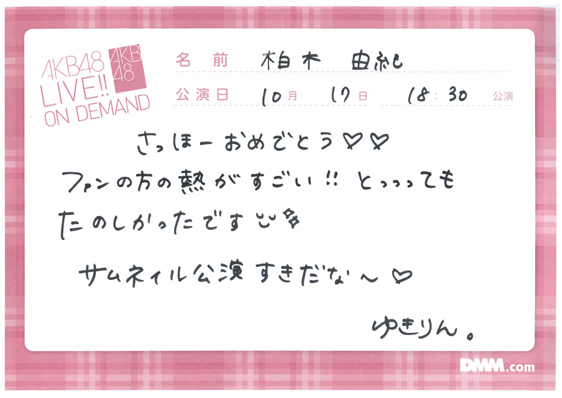 AKB48
LIVE!!
ON DEMAND
AKB
48
名 前 柏木 由紀
公演日 10月 17日 18:30 公演
さっほーおめでとう♡♡
ファンの方の熱がすごい!! とっっっても
たのしかったです
サムネイル公演すきだな〜♡
ゆきりん。
DMM.com